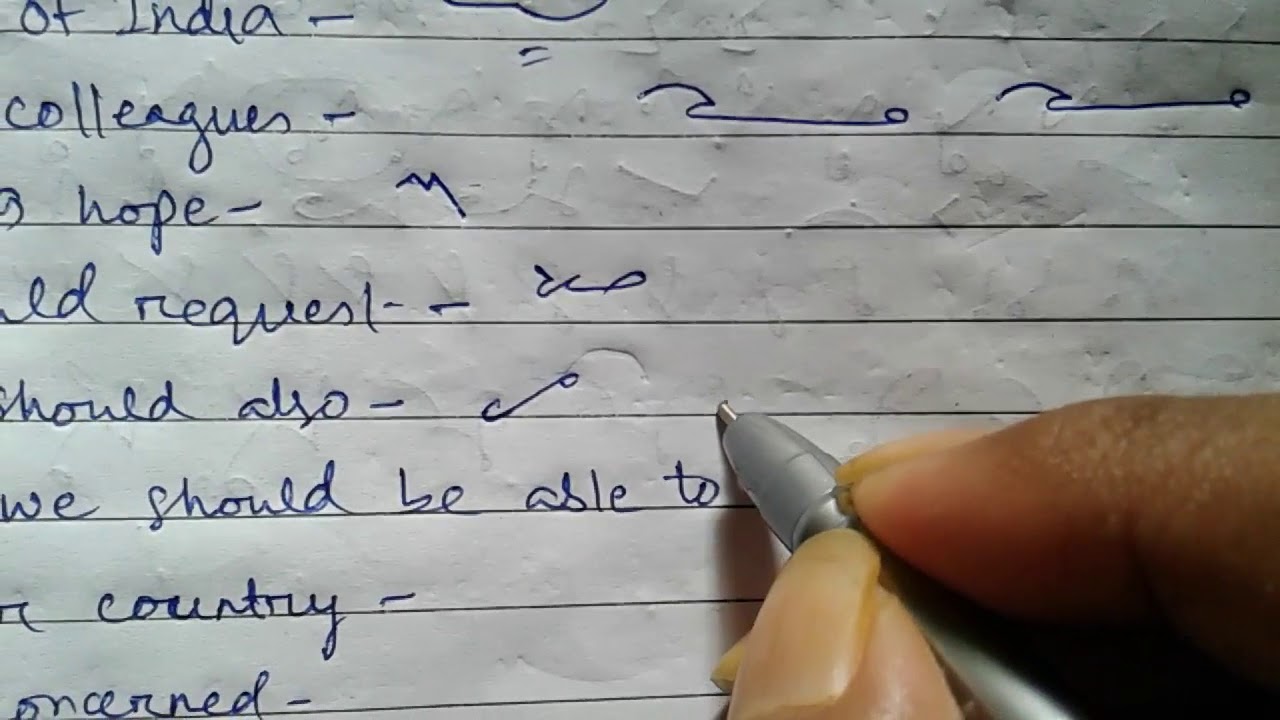 of India -
colleagues -
hope -
ld request -
should also -
we should be able to
country -
oncerned -